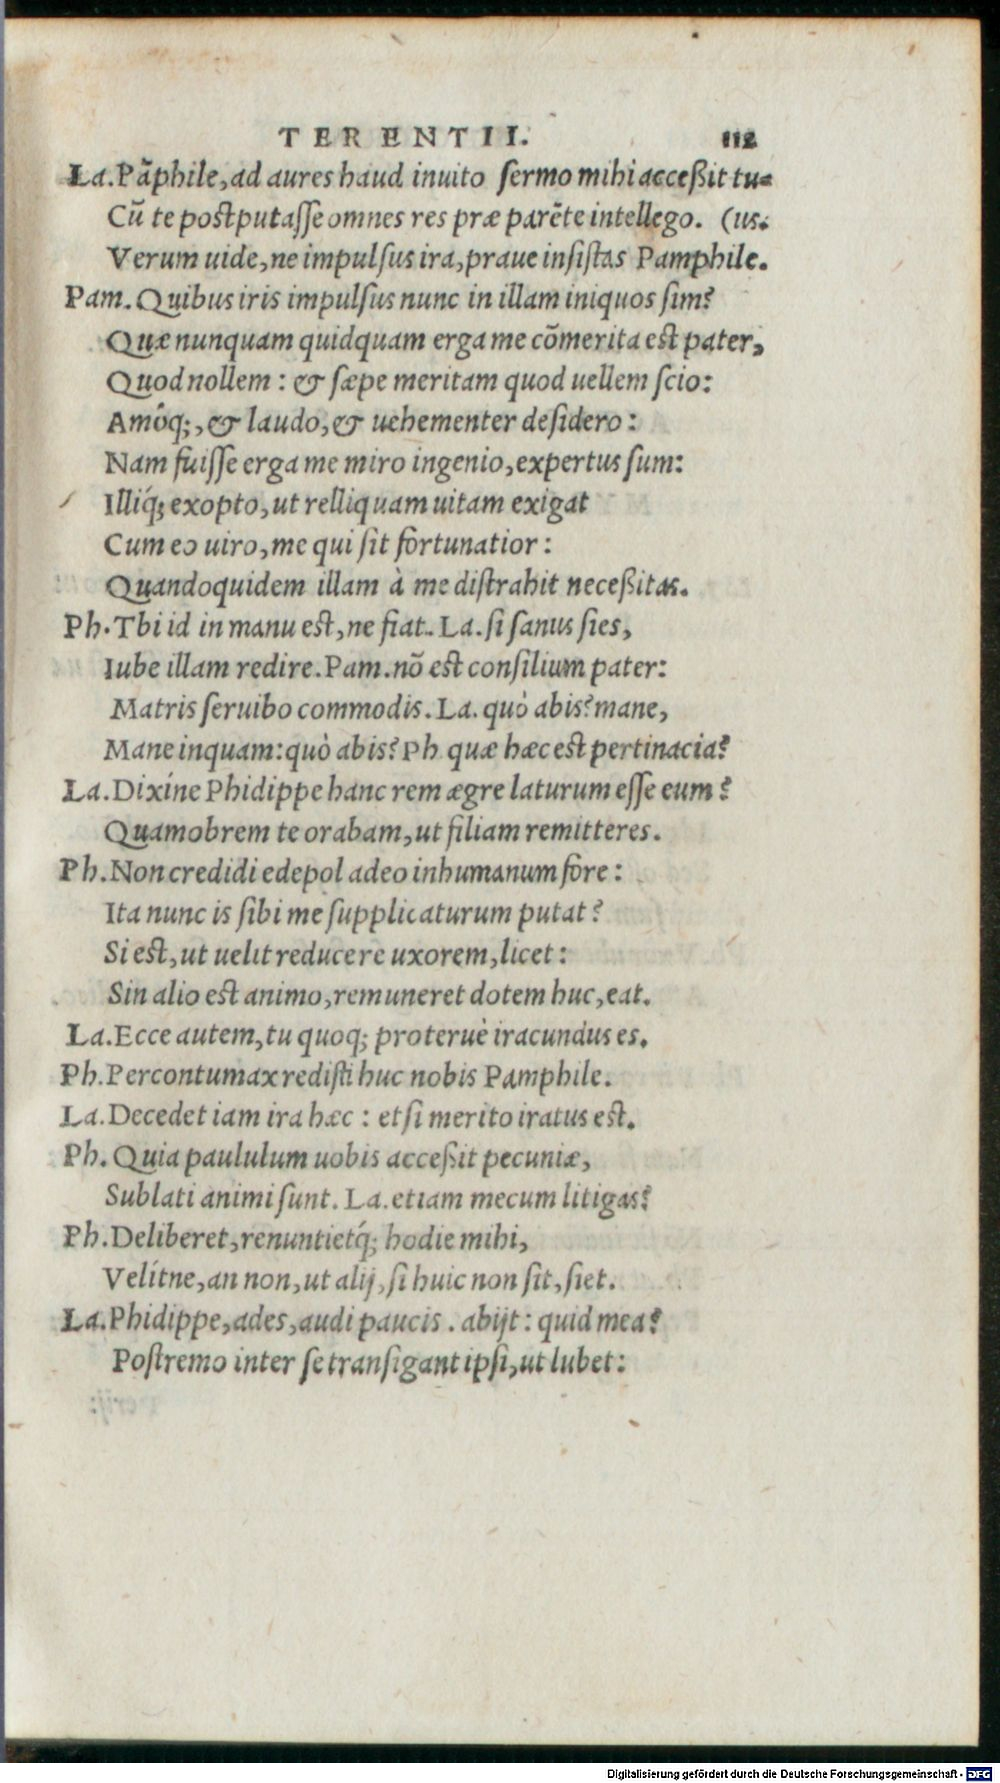 TERENTII. 112
La. Pãphile, ad aures haud inuito sermo mihi acceßit tu-
Cũ te postputasse omnes res præ parẽte intellego. (us.
Verum uide, ne impulsus ira, praue insistas Pamphile.
Pam. Quibus iris impulsus nunc in illam iniquos sim?
Quæ nunquam quidquam erga me cõmerita est pater,
Quod nollem: & sæpe meritam quod uellem scio:
Amóq;, & laudo, & uehementer desidero:
Nam fuisse erga me miro ingenio, expertus sum:
Illíq́; exopto, ut relliquam uitam exigat
Cum eo uiro, me qui sit fortunatior:
Quandoquidem illam à me distrahit neceßitas.
Ph. Tbi id in manu est, ne fiat. La. si sanus sies,
Iube illam redire. Pam. nõ est consilium pater:
Matris seruibo commodis. La. quò abis? mane,
Mane inquam: quò abis? Ph quæ hæc est pertinacia?
La. Dixíne Phidippe hanc rem ægre laturum esse eum?
Quamobrem te orabam, ut filiam remitteres.
Ph. Non credidi edepol adeo inhumanum fore:
Ita nunc is sibi me supplicaturum putat?
Si est, ut uelit reducere uxorem, licet:
Sin alio est animo, remuneret dotem huc, eat.
La. Ecce autem, tu quoq; proteruè iracundus es.
Ph. Percontumax redisti huc nobis Pamphile.
La. Decedet iam ira hæc: etsi merito iratus est.
Ph. Quia paululum uobis acceßit pecuniæ,
Sublati animi sunt. La. etiam mecum litigas?
Ph. Deliberet, renuntietq́; hodie mihi,
Velítne, an non, ut alij, si huic non sit, siet.
La. Phidippe, ades, audi paucis. abijt: quid mea?
Postremo inter se transigant ipsi, ut lubet:
Digitalisierung gefördert durch die Deutsche Forschungsgemeinschaft - DFG